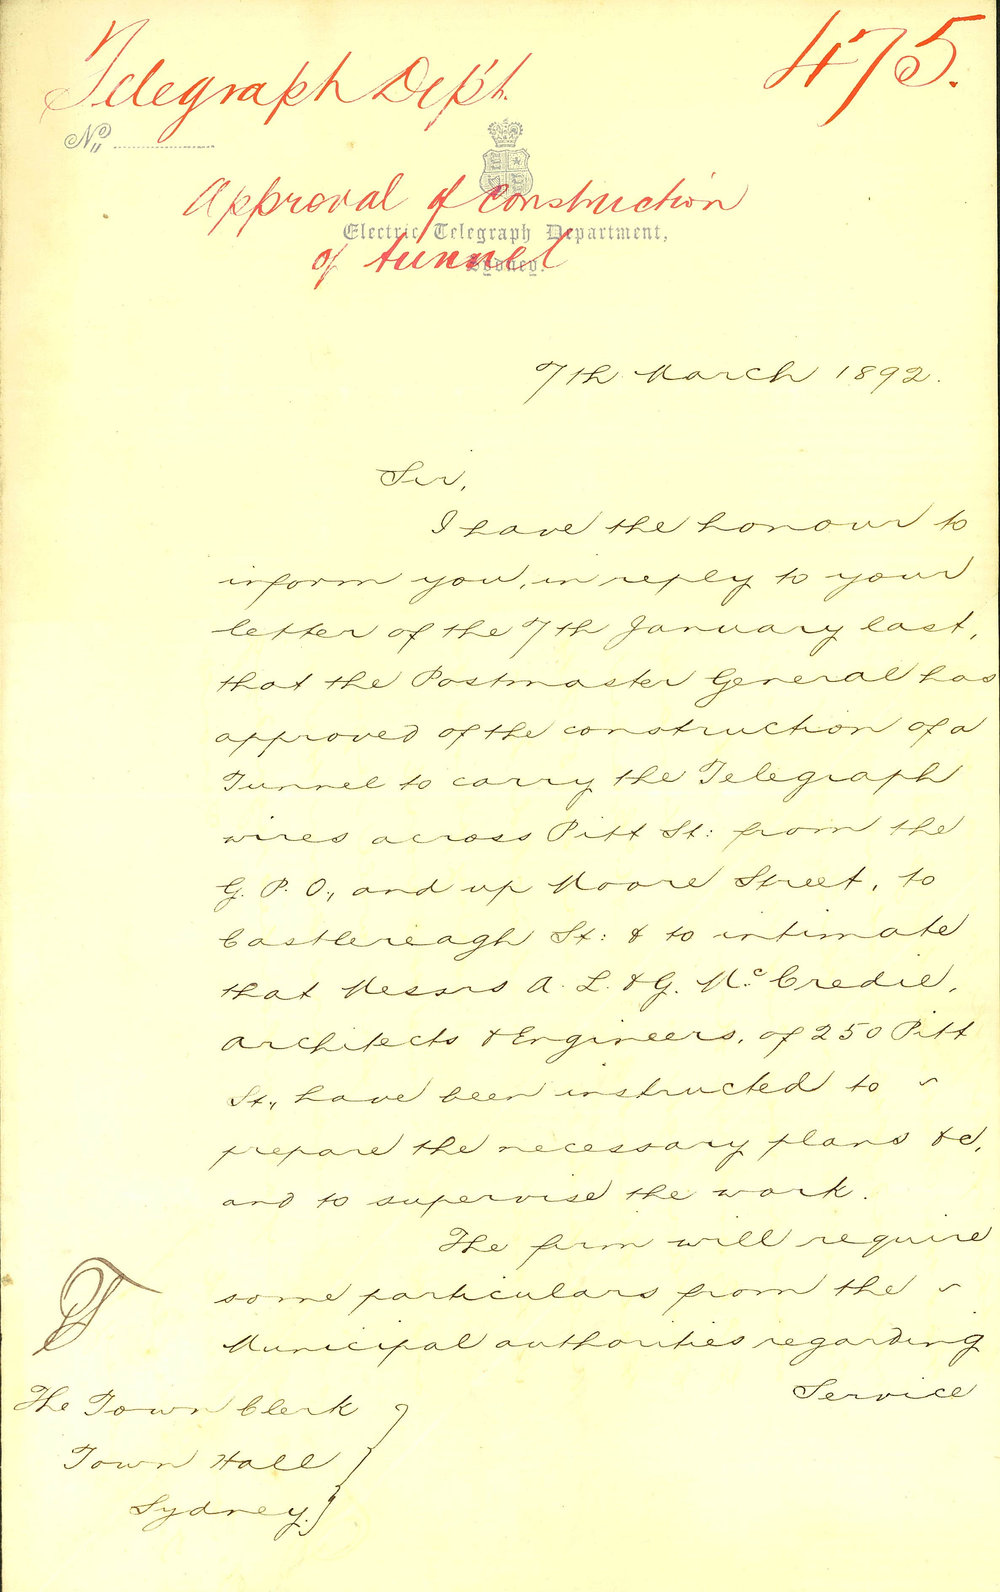 Telegraph Dep't.
475.
No.
Approval of construction
Electric Telegraph Department,
of tunnel
Sydney.
7th March 1892.
Sir,
I have the honour to
inform you, in reply to your
letter of the 7th January last,
that the Postmaster General has
approved of the construction of a
Tunnel to carry the Telegraph
wires across Pitt St: from the
G. P. O., and up Moore Street, to
Castlereagh St: & to intimate
that Messrs A. L. & G. McCredie,
Architects & Engineers, of 250 Pitt
St., have been instructed to ~
prepare the necessary plans &c,
and to supervise the work.
The firm will require
some particulars from the ~
Municipal authorities regarding
Service
The Town Clerk
Town Hall
Sydney.